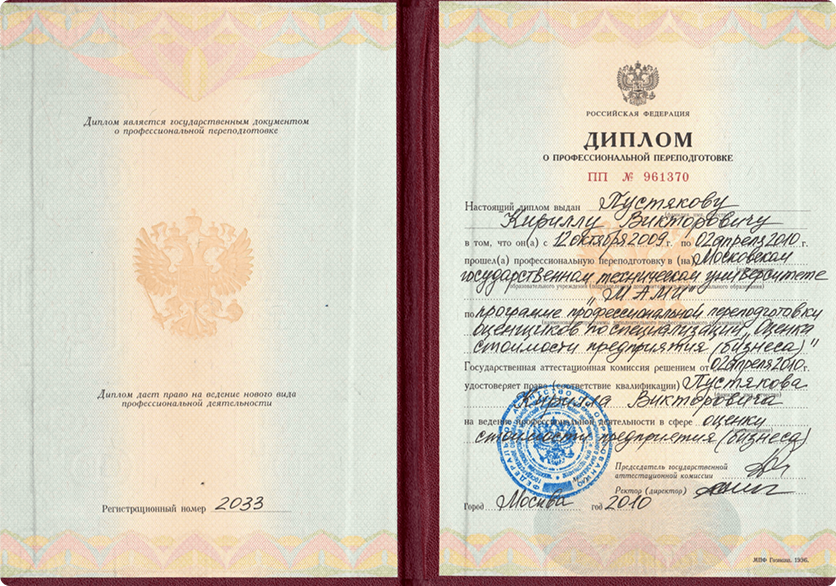 Диплом является государственным документом
о профессиональной переподготовке
Диплом дает право на ведение нового вида
профессиональной деятельности
Регистрационный номер 2033
РОССИЙСКАЯ ФЕДЕРАЦИЯ
ДИПЛОМ
О ПРОФЕССИОНАЛЬНОЙ ПЕРЕПОДГОТОВКЕ
ПП № 961370
Настоящий диплом выдан Пустякову
Кириллу Викторовичу
в том, что он(а) с 12 октября 2009 г. по 02 апреля 2010 г.
прошел(а) профессиональную переподготовку в (на) Московском
государственном техническом университете
"МАМИ"
по программе профессиональной переподготовки
оценщиков по специализации „Оценка
стоимости предприятия (бизнеса)"
Государственная аттестационная комиссия решением от 02 апреля 2010 г.
удостоверяет право (соответствие квалификации) Пустякова
Кирилла Викторовича
на ведение профессиональной деятельности в сфере оценки
стоимости предприятия (бизнеса)
Председатель государственной
аттестационной комиссии
Ректор (директор)
Город Москва год 2010
МПФ Гознака. 1996.